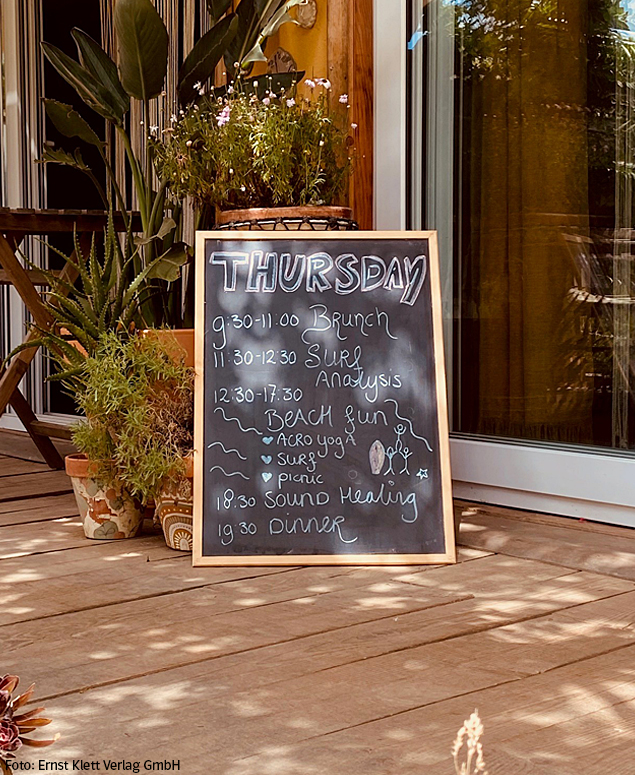 THURSDAY
9:30-11:00 Brunch
11:30-12:30 Surf
Analysis
12:30-17:30
BEACH fun
ACRO YOGA
Surf
picnic
18:30 SOUND Healing
19 30 DINNER
Foto: Ernst Klett Verlag GmbH